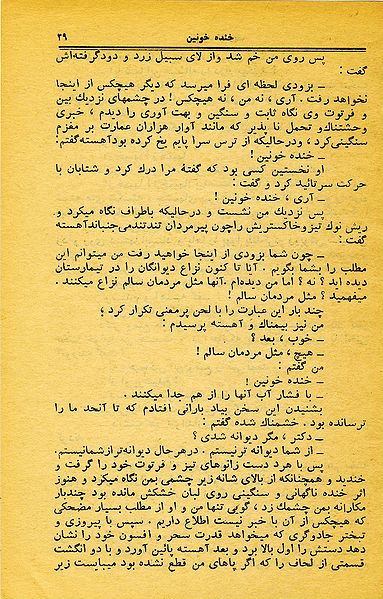 خنده خونین ۲۹
پس روی من خم شد واز لای سبیل زرد و دودگرفته‌اش
گفت :
ـ بزودی لحظه ای فرا میرسد که دیگر هیچکس از اینجا
نخواهد رفت . آری ، نه من ، نه هیچکس ! در چشمهای نزدیك بین
و فرتوت وی نگاه ثابت و سنگین و بهت آوری را دیدم ، خبری
وحشتناك‌و تحمل نا پذیر که مانند آوار هزاران عمارت بر مغزم
سنگینی‌کرد ، ودرحالیکه از ترس سرا پایم یخ کرده بود‌آهسته‌گفتم :
ـ خنده خونین !
او نخستین کسی بود که گفتهٔ مرا درك کرد و شتابان با
حرکت سرتائید کرد و گفت :
ـ آری ، خنده خونین !
پس نزدیك من نشست و درحالیکه باطراف نگاه میکرد و
ریش نوك تیز‌وخاکستریش راچون پیرمردان تندتندمی‌جنباند‌آهسته
گفت :
ـ چون شما بزودی از اینجا خواهید رفت من میتوانم این
مطلب را بشما بگویم . آیا تا کنون نزاع دیوانگان را در تیمارستان
دیده اید ؟ نه ؟ اما من دیده‌ام .آنها مثل مردم سالم نزاع میکنند .
میفهمید ؟ مثل مردمان سالم !
چند بار این عبارت را با لحن پرمعنی تکرار کرد ؛
من نیز بیمناك و آهسته پرسیدم :
ـ خوب ، بعد ؟
ـ هیچ ، مثل مردمان سالم !
من گفتم :
ـ خنده خونین !
ـ با فشار آب آنها را از هم جدا میکنند .
بشنیدن این سخن بیاد بارانی افتادم که تا آنحد ما را
ترسانده بود . خشمناك شده گفتم :
ـ دکتر ، مگر دیوانه شدی ؟
ـ از شما دیوانه ترنیستم . درهرحال دیوانه‌ترازشمانیستم.
پس با هرد دست زانوهای تیز و فرتوت خود را گرفت و
خندید و همچنانکه از بالای شانه زیر چشمی بمن نگاه میکرد و هنوز
اثر خنده ناگهانی و سنگینی روی لبان خشکش مانده بود چندبار
مکارانه بمن چشمك زد ، گویی تنها من و او از مطلب بسیار مضحکی
که هیچکس از آن با خبر نیست اطلاع داریم . سپس با پیروزی و
تبختر جادوگری که میخواهد قدرت سحر و افسون خود را نشان
دهد دستش را اول بالا برد و بعد آهسته پائین آورد و با دو انگشت
قسمتی از لحاف را که اگر پاهای من قطع نشده بود میبایست زیر